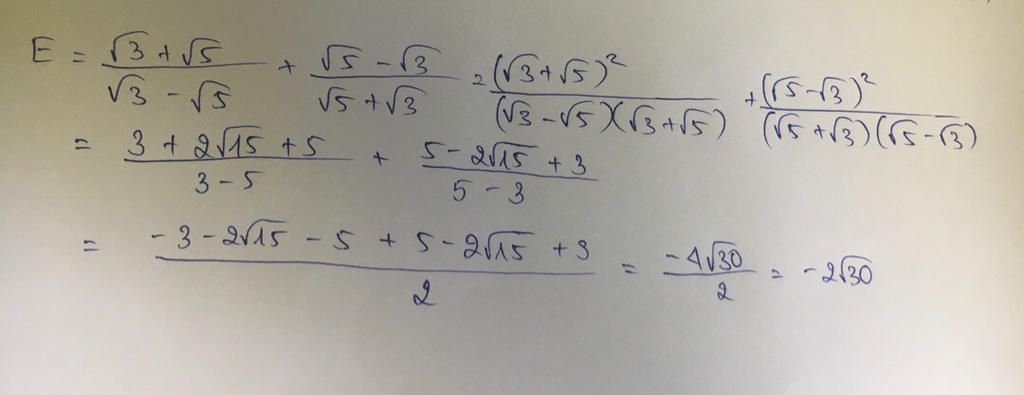 E = (√3 + √5)/(√3 - √5) + (√5 - √3)/(√5 + √3) = (√3 + √5)²/((√3 - √5)(√3 + √5)) + (√5 - √3)²/((√5 + √3)(√5 - √3))
= (3 + 2√15 + 5)/(3 - 5) + (5 - 2√15 + 3)/(5 - 3)
= (-3 - 2√15 - 5 + 5 - 2√15 + 3)/2 = (-4√30)/2 = -2√30